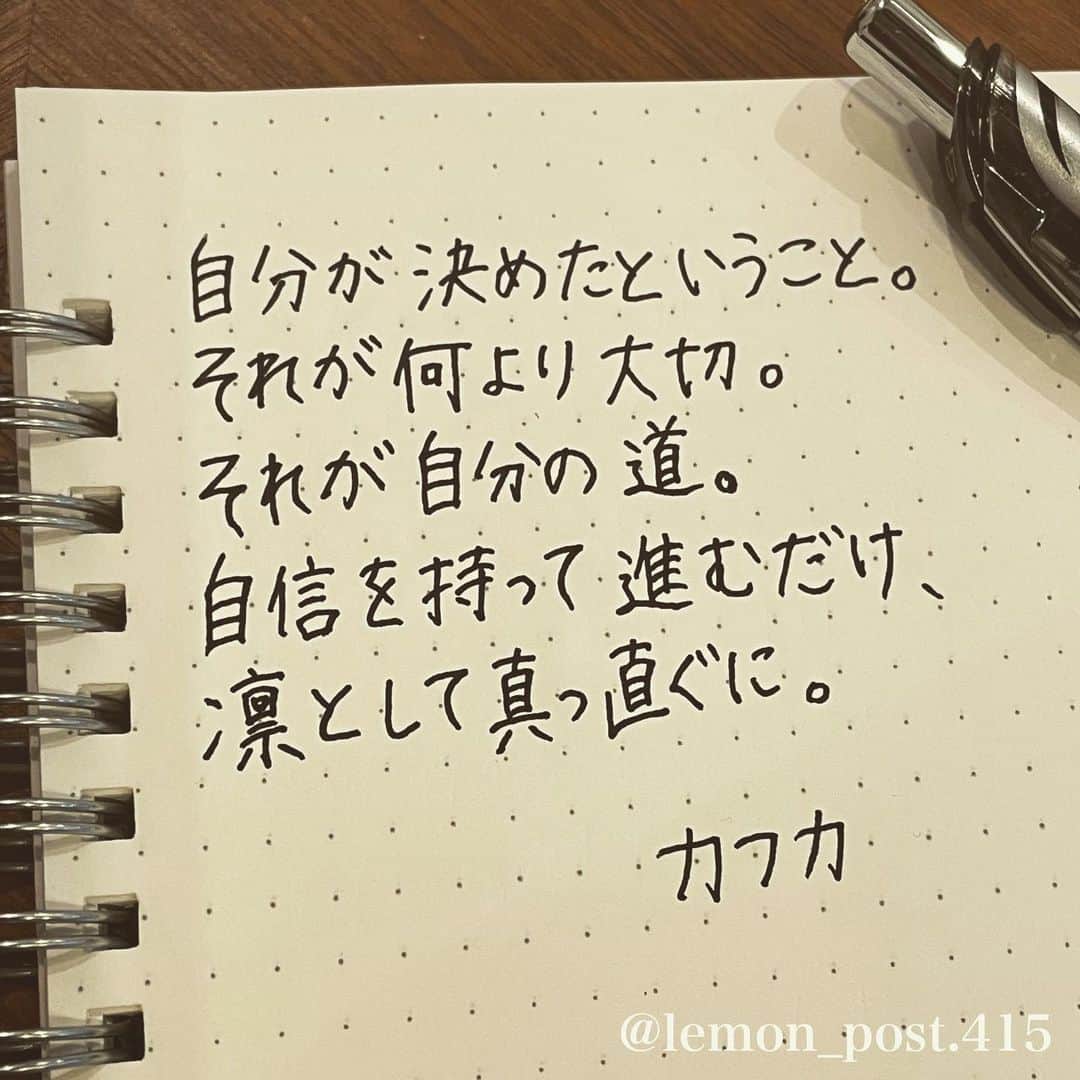 自分が決めたということ。
それが何より大切。
それが自分の道。
自信を持って進むだけ、
凛として真っ直ぐに。
カフカ
@lemon_post.415